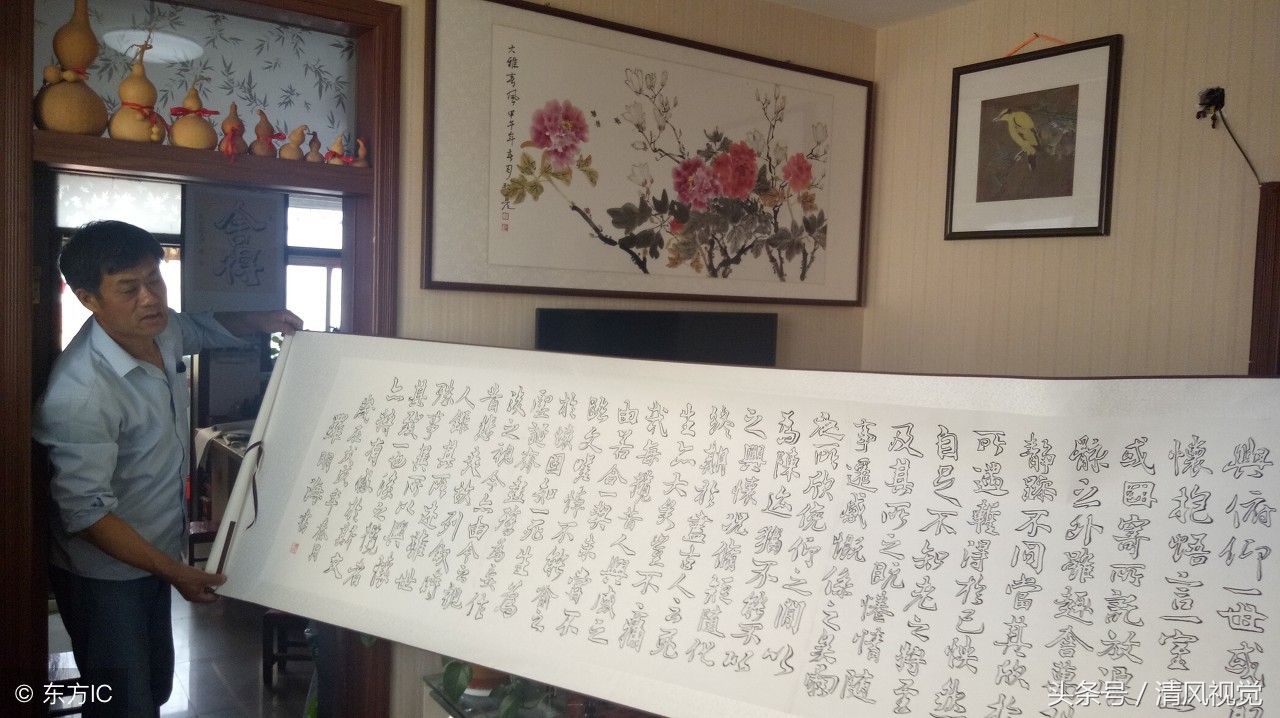 大雅春風甲午年
舍得
與俯仰一世或取
懷抱悟言一室之
或因寄所託放浪
骸之外雖趣舍萬
靜躁不同當其欣於
所遇暫得於己怏然
自足不知老之將至
及其所之既惓情隨
事遷感慨係之矣向
之所欣俛仰之閒以
為陳迹猶不能不以
之興懷況脩短隨化
終期於盡古人云死
生亦大矣豈不痛
哉每攬昔人興感之
由若合一契未嘗不
臨文嗟悼不能喻之
於懷固知一死生為
虛誕齊彭殤為妄作
後之視今亦由今之視
昔悲夫故列敘時
人錄其所述雖世
殊事異所以興懷
其致一也後之攬者
亦將有感於斯文
歲在戊戌年春月
羅湖海書
© 东方IC
头条号 / 清风视觉